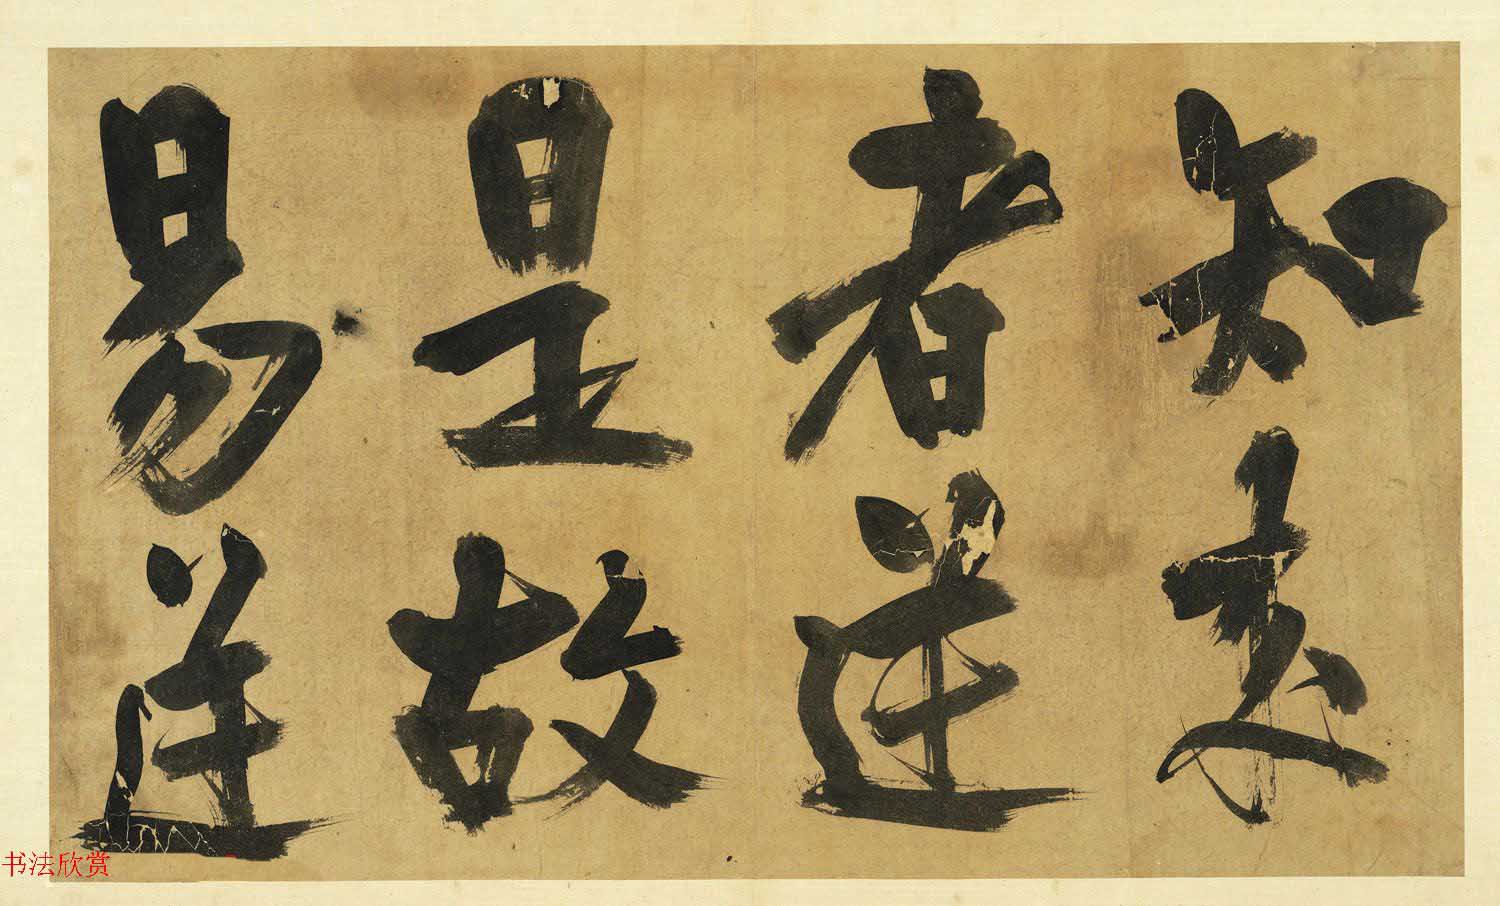 知來
者逆
是故
易逆
书法欣赏